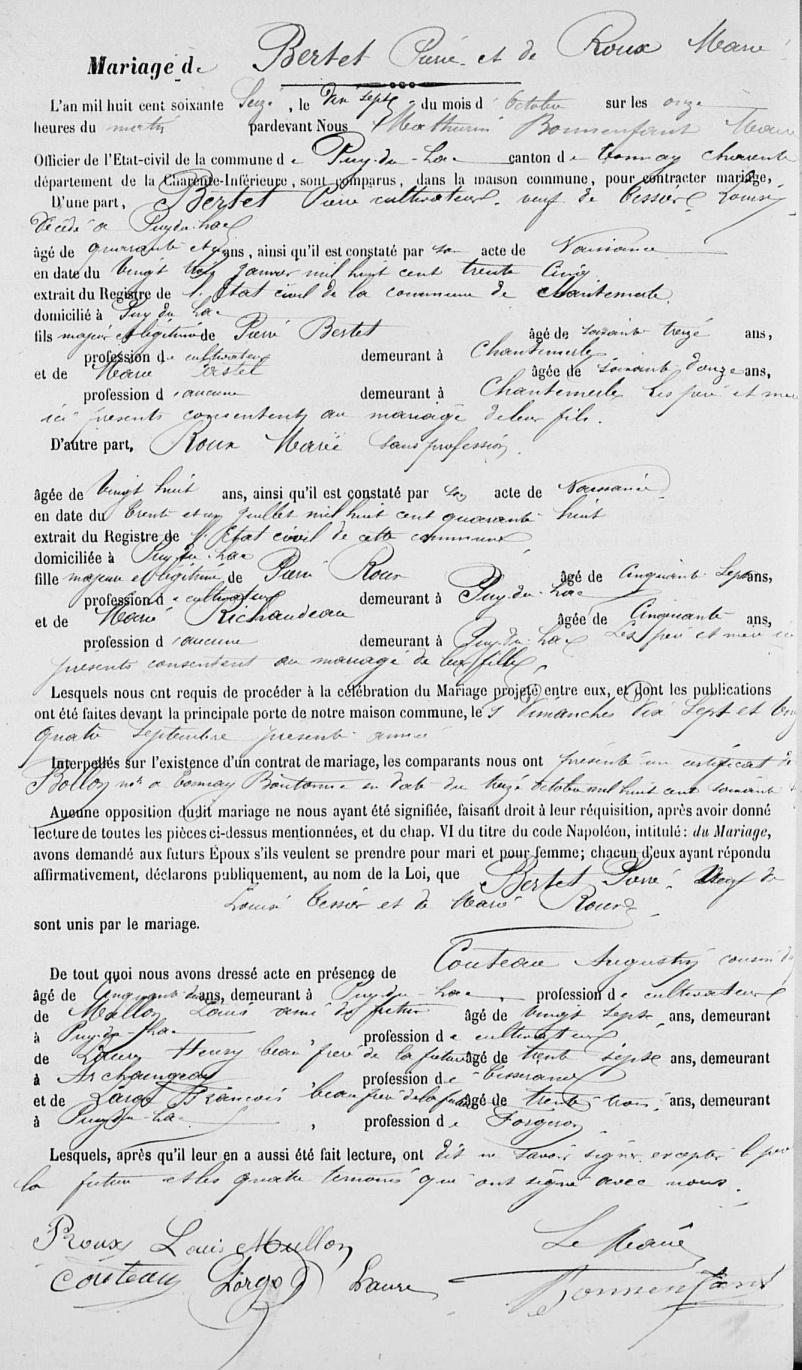 Mariage de Bertet Pierre et de Roux Marie
L'an mil huit cent soixante Seize, le Vin sept du mois d'Octobre sur les onze
heures du matin pardevant Nous Mathurin Bonnenfant Maire
Officier de l'Etat-civil de la commune de Puy-du-Lac canton de Tonnay Charente
département de la Charente-Inférieure, sont comparus, dans la maison commune, pour contracter mariage,
D'une part, Bertet Pierre cultivateur veuf de Tessier Louise
Décédé a Puy-du-Lac
âgé de quarante et un ans, ainsi qu'il est constaté par son acte de Naissance
en date du Vingt janvier mil huit cent trente Cinq
extrait du Registre de l'Etat civil de la commune de Chantemerle
domicilié à Puy du Lac
fils majeur et légitime de Pierre Bertet âgé de soixante treize ans,
profession de cultivateur demeurant à Chantemerle
et de Marie âgée de soixante douze ans,
profession d aucune demeurant à Chantemerle Les père et mère
ici présents consentent au mariage de leur fils.
D'autre part, Roux Marie sans profession.
âgée de Vingt huit ans, ainsi qu'il est constaté par son acte de Naissance
en date du trente et un juillet mil huit cent quarante huit
extrait du Registre de l'Etat civil de cette commune
domiciliée à Puy du Lac
fille majeure et légitime de Pierre Roux âgé de Cinquante Sept ans,
profession de cultivateur demeurant à Puy-du-Lac
et de Marie Richaudeau âgée de Cinquante ans,
profession d aucune demeurant à Puy-du-Lac Les père et mère ici
présents consentent au mariage de leur fille
Lesquels nous ont requis de procéder à la célébration du Mariage projeté entre eux, et dont les publications
ont été faites devant la principale porte de notre maison commune, les Dimanches Dix Sept et Vingt
quatre Septembre présente année
Interpellés sur l'existence d'un contrat de mariage, les comparants nous ont présenté un certificat de
Bollon nre a Tonnay Boutonne en date du treize octobre mil huit cent soixante
Aucune opposition dudit mariage ne nous ayant été signifiée, faisant droit à leur réquisition, après avoir donné
lecture de toutes les pièces ci-dessus mentionnées, et du chap. VI du titre du code Napoléon, intitulé: du Mariage,
avons demandé aux futurs Époux s'ils veulent se prendre pour mari et pour femme; chacun d'eux ayant répondu
affirmativement, déclarons publiquement, au nom de la Loi, que Bertet Pierre Veuf de
Louise Tessier et de Marie Roux
sont unis par le mariage.
De tout quoi nous avons dressé acte en présence de Couteau Augustin cousin du
âgé de Cinquante ans, demeurant à Puy-du-Lac profession de cultivateur
de Mullon Louis ami du futur âgé de vingt sept ans, demeurant
à Puy-du-Lac profession de cultivateur
de Laure Henry beau frère de la future âgé de trente sept ans, demeurant
à Archaingeay profession de tisserand
et de Largo François beau frère de la future âgé de trente trois ans, demeurant
à Puy-du-Lac, profession de Forgeron
Lesquels, après qu'il leur en a aussi été fait lecture, ont dit ne savoir signer excepté le père
la future et les quatre temoins qui ont signé avec nous.
Roux Louis Mullon Le Maire
Couteau Largo Laure Bonnenfant